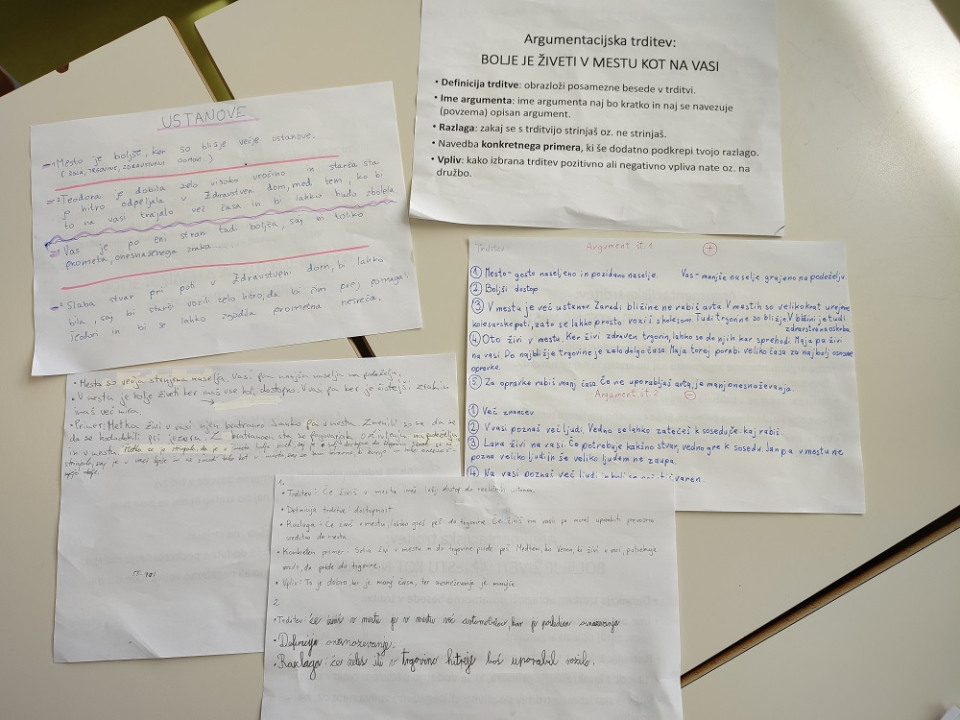 Argumentacijska trditev:
BOLJE JE ŽIVETI V MESTU KOT NA VASI
• Definicija trditve: obrazloži posamezne besede v trditvi.
• Ime argumenta: ime argumenta naj bo kratko in naj se navezuje
(povzema) opisan argument.
• Razlaga: zakaj se s trditvijo strinjaš oz. ne strinjaš.
• Navedba konkretnega primera, ki še dodatno podkrepi tvojo razlago.
• Vpliv: kako izbrana trditev pozitivno ali negativno vpliva nate oz. na
družbo.
USTANOVE
Mesto je boljše, ker so bližje večje ustanove.
(šola, trgovine, zdravstveni domovi...)
Teodora je dobila zelo visoko vročino in starša sta
jo hitro odpeljala v Zdravstven dom, med tem, ko bi
to na vasi trajalo več časa in bi lahko hudo zbolela
Vas je po eni strani tudi boljša, saj bi toliko
prometa, onesnaženega zraka....
Slaba stvar pri poti v Zdravstveni dom, bi lahko
bila, saj bi starši vozili zelo hitro, da bi čim prej pomagali
Teodori in bi se lahko zgodila prometna nesreča.
Trditev Argument št. 1 +
1 Mesto- gosto naseljeno in pozidano naselje. Vas- manjše naselje grajeno na podeželju.
2 Boljši dostop
3 V mestu je več ustanov. Zaradi bližine ne rabiš avta. V mestih so velikokrat urejene
kolesarske poti, zato se lahko prosto voziš s kolesom. Tudi trgovine so bližje. V bližini je tudi
zdravstvena oskrba
4 Oto živi v mestu. Ker živi zdraven trgovin, lahko se do njih kar sprehodi. Maja pa živi
na vasi. Do najbližje trgovine je zelo dolgo časa. Maja torej porabi veliko časa za najbolj osnovne
opravke.
5 Za opravke rabiš manj časa. Če ne uporabljaš avta, je manj onesnaževanja.
Argument št. 2 -
1 Več znancev
2 V vasi poznaš več ljudi. Vedno se lahko zatečeš k sosedu, če kaj rabiš.
3 Lana živi na vasi. Če potrebuje kakšno stvar, vedno gre k sosedu. Jan pa v mestu ne
pozna veliko ljudi in še veliko ljudem ne zaupa.
4 Na vasi poznaš več ljudi
• Mesta so večja strnjena naselja. Vasi pa manjša naselja na podeželju.
• V mestu je bolje živeti ker imaš vse bolj dostopno. Na vasi pa ker je čistejši zrak in
imaš več mira.
• Primer: Metka živi v vasi njen bratranec Janko pa v mesta. Zmenili so se da
da se pri jezeru.
in v mestu.
1.
• Trditev: Če živiš v mestu imaš lažji dostop do različnih ustanov.
• Definicija trditve: dostopnost
• Razlaga: Če živiš v mestu, lahko greš peš do trgovine. Če živiš na vasi pa moraš uporabiti prevozno
sredstvo do mesta.
• Konkreten primer: Sofia živi v mestu in do trgovine pride peš. Medtem, ko Vesna, ki živi v vasi, potrebuje
vozilo, da pride do trgovine.
• Vpliv: To je dobro ker je manj časa, ter onesnaževanje je manjše.
2.
• Trditev: če živiš v mestu je v mestu več avtomobilov kar je posledica onesnaževanja
• Definicija onesnaževanje.
• Razlaga: če želiš iti v trgovino hitreje boš uporabil vozilo.